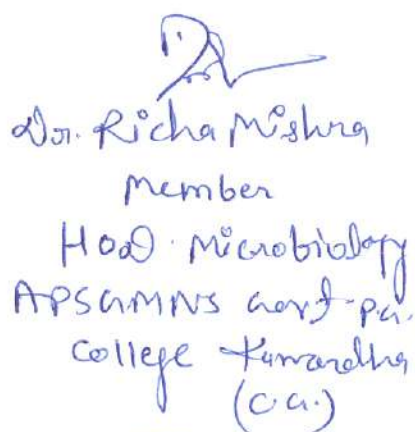 Dr. Richa Mishra
Member
HOD. Microbiology
APSGMNS Govt p.G.
College Kawardha
(C.G.)